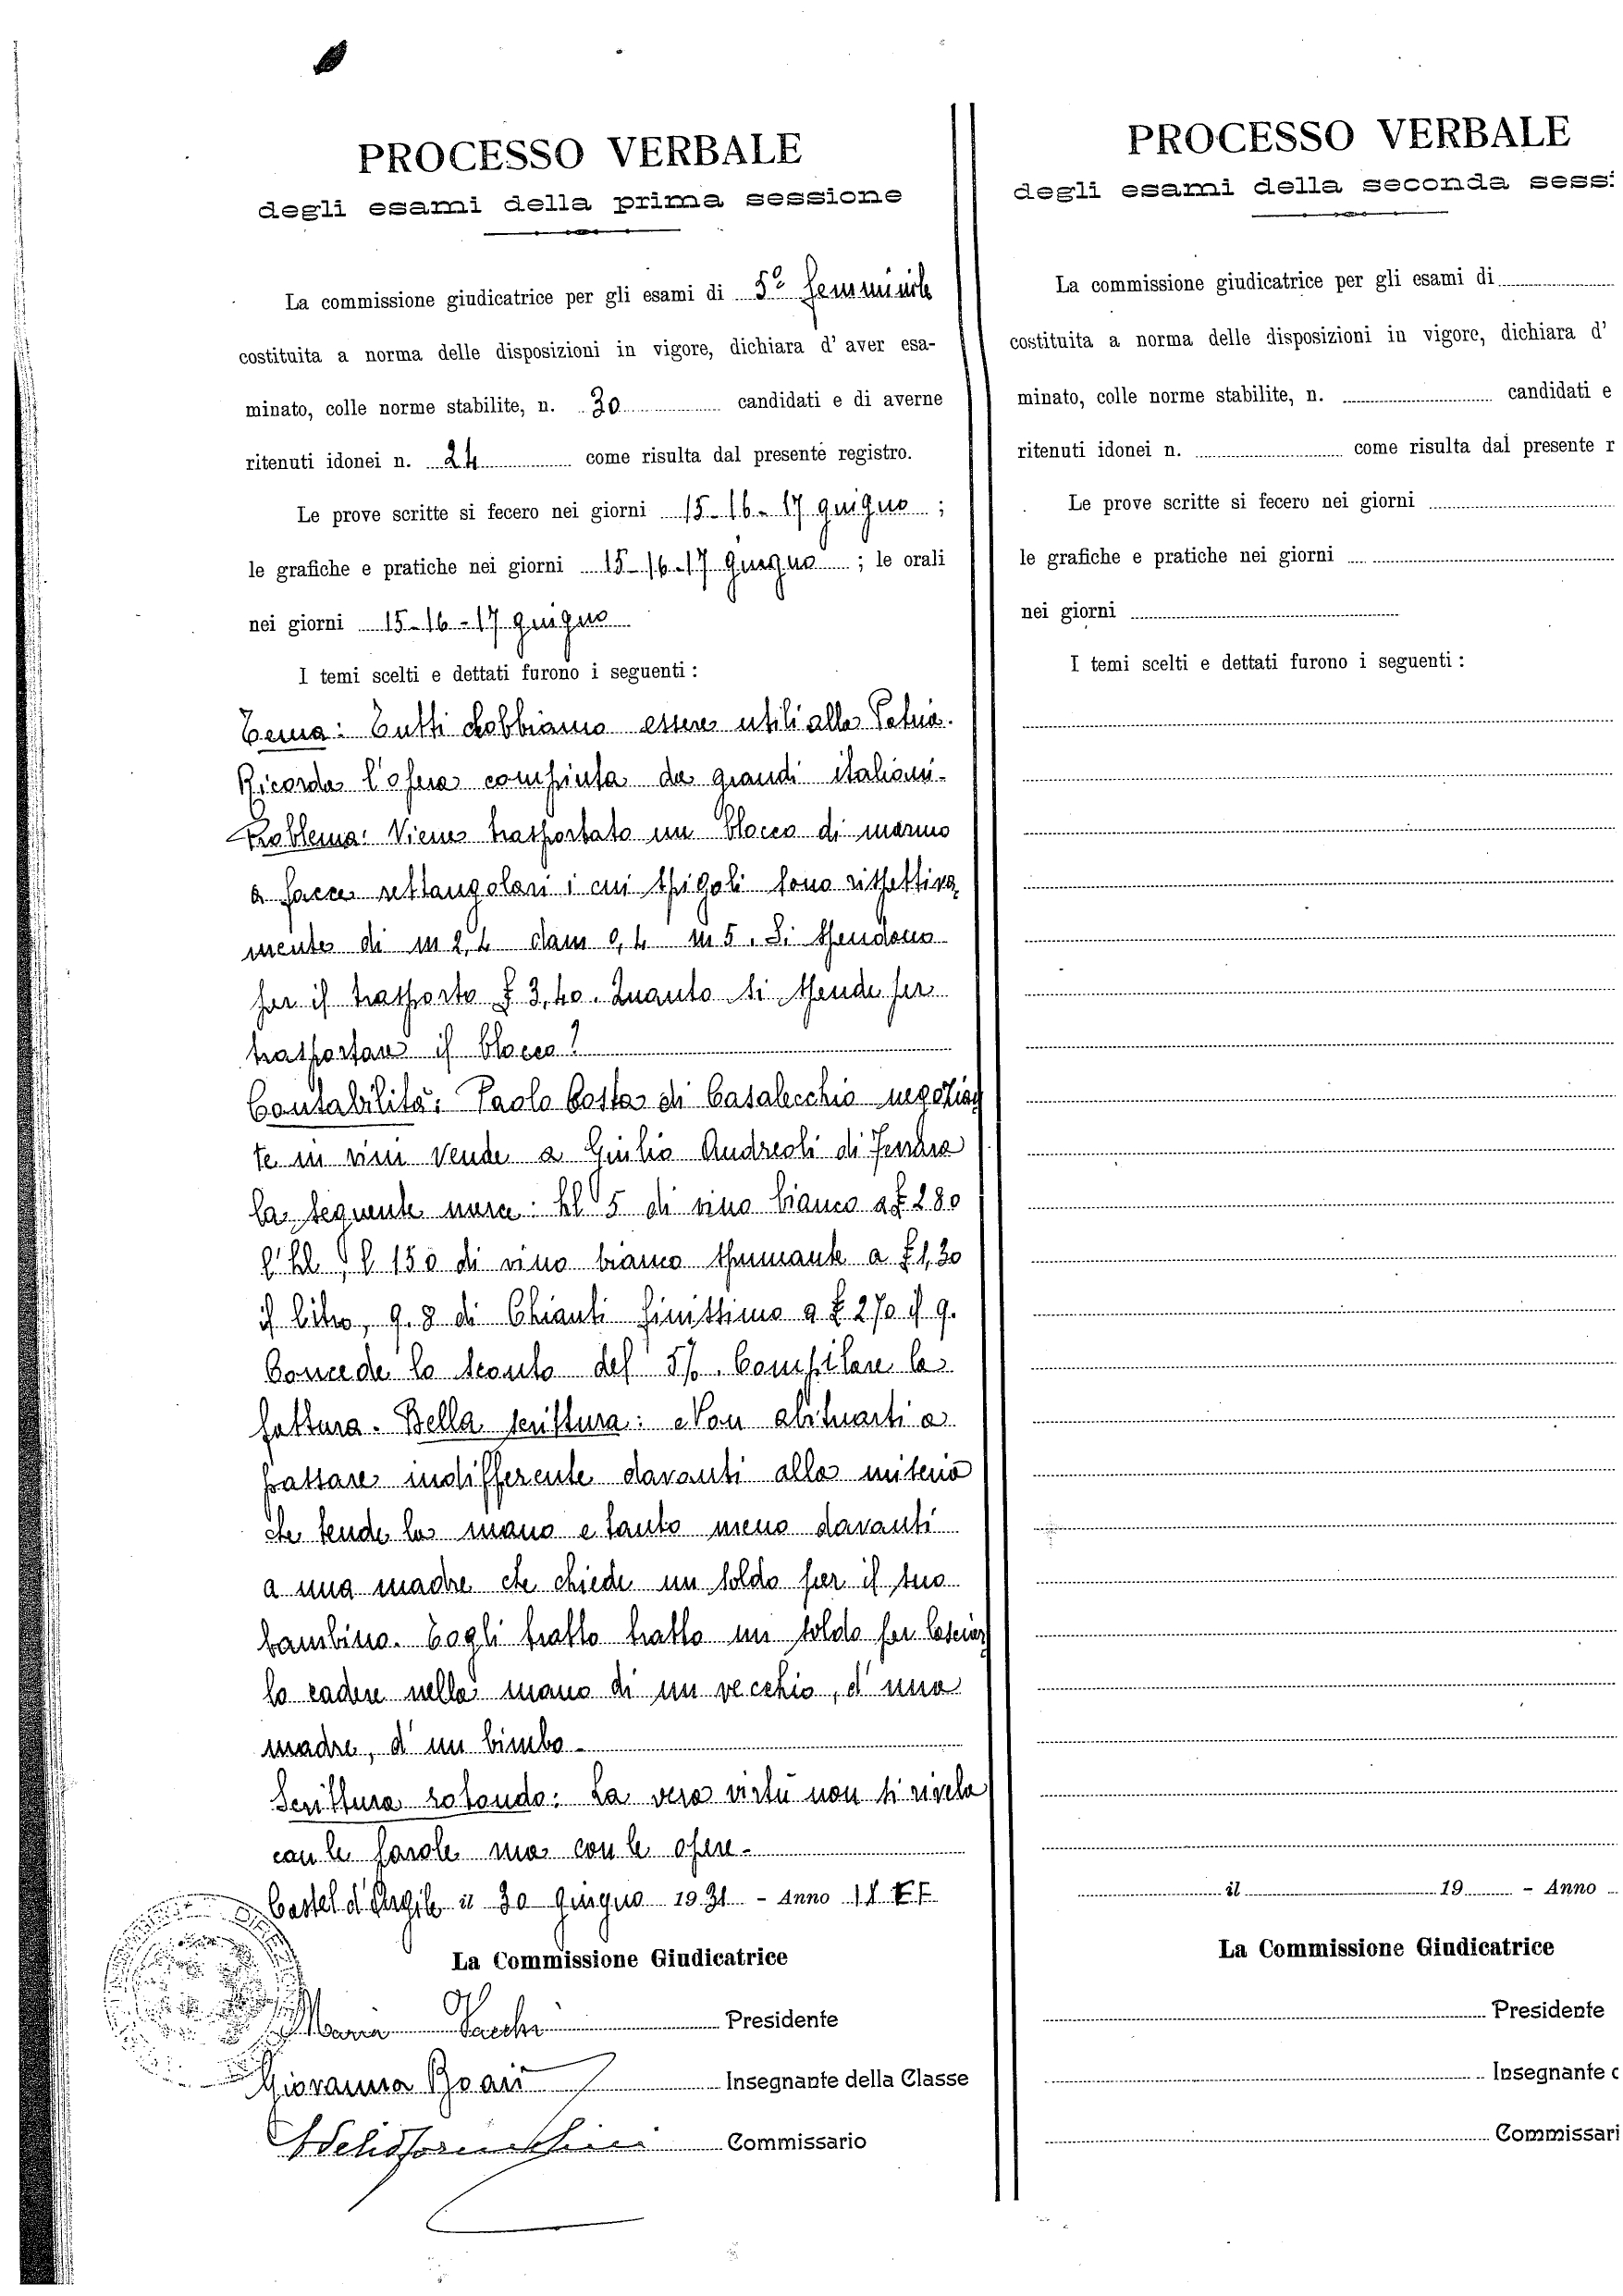 PROCESSO VERBALE
degli esami della prima sessione
La commissione giudicatrice per gli esami di 5ª femminile
costituita a norma delle disposizioni in vigore, dichiara d' aver esa-
minato, colle norme stabilite, n. 30 candidati e di averne
ritenuti idonei n. 24 come risulta dal presente registro.
Le prove scritte si fecero nei giorni 15-16-17 giugno ;
le grafiche e pratiche nei giorni 15-16-17 giugno ; le orali
nei giorni 15-16-17 giugno
I temi scelti e dettati furono i seguenti :
Tema: Tutti dobbiamo essere utili alla Patria.
Ricorda l'opera compiuta da grandi italiani-
Problema: Viene trasportato un blocco di marmo
a facce rettangolari i cui spigoli sono rispettiva
mente di m 2,4 dam 0,4 m 5. Si spendono
per il trasporto £ 3,40. Quanto si spende per
trasportare il blocco?
Contabilità: Paolo Costa di Casalecchio negozian
te in vini vende a Giulio Andreoli di Ferrara
la seguente merce: hl 5 di vino bianco a £ 280
l'hl, l 150 di vino bianco spumante a £ 1,30
il litro, q. 8 di Chianti finissimo a £ 270 il q.
Concede lo sconto del 5%. Compilare la
fattura. Bella scrittura: Non abituarti a
passare indifferente davanti alla miseria
che tende la mano e tanto meno davanti
a una madre che chiede un soldo per il suo
bambino. Togli tratto tratto un soldo per lasciar
lo cadere nella mano di un vecchio, d'una
madre, d'un bimbo-
Scrittura rotonda: La vera virtù non si rivela
con le parole ma con le opere-
Castel d'Argile il 30 giugno 1931 - Anno E.F.
La Commissione Giudicatrice
Maria Presidente
Giovanna Insegnante della Classe
Commissario
PROCESSO VERBALE
degli esami della seconda sess
La commissione giudicatrice per gli esami di
costituita a norma delle disposizioni in vigore, dichiara d'
minato, colle norme stabilite, n. candidati e
ritenuti idonei n. come risulta dal presente r
Le prove scritte si fecero nei giorni
le grafiche e pratiche nei giorni
nei giorni
I temi scelti e dettati furono i seguenti :
il 19 - Anno
La Commissione Giudicatrice
Presidente
Insegnante
Commissari